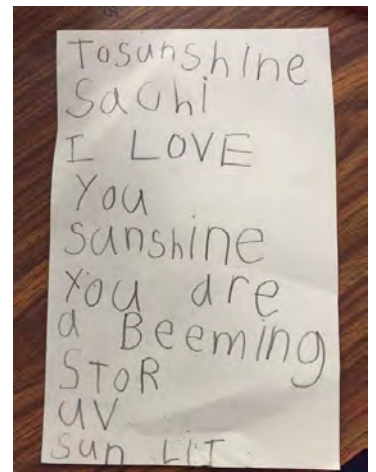 Tosunshine
Sachi
I LOVE
You
Sunshine
You are
a Beeming
SToR
uv
Sun LIT